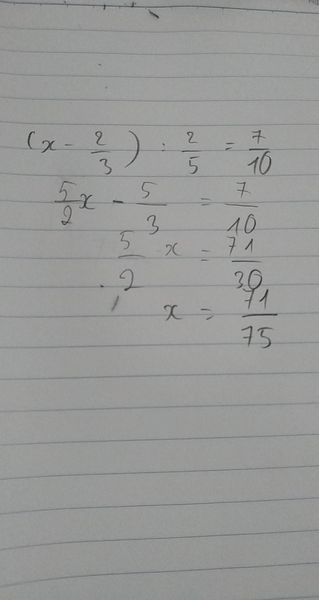 (x - 2/3) : 2/5 = 7/10
5/2 x - 5/3 = 7/10
5/2 x = 71/30
x = 71/75